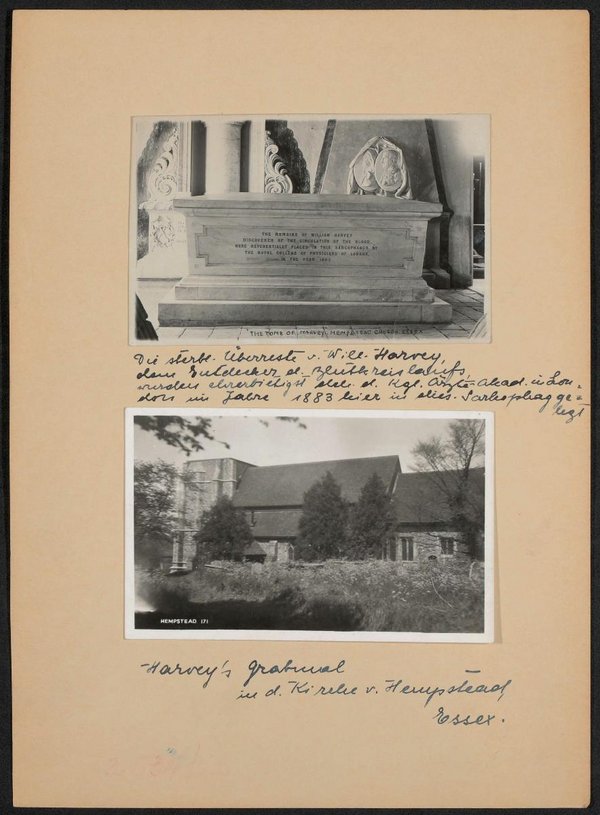 THE REMAINS OF WILLIAM HARVEY
DISCOVERER OF THE CIRCULATION OF THE BLOOD,
WERE REVERENTIALLY PLACED IN THIS SARCOPHAGUS BY
THE ROYAL COLLEGE OF PHYSICIANS OF LONDON,
IN THE YEAR 1883.
THE TOMB OF HARVEY, HEMPSTEAD CHURCH ESSEX
Die sterbl. Überreste v. Will. Harvey,
dem Entdecker d. Blutkreislaufs,
wurden ehrerbietigst d. Kgl. Ärzte-Akad. in Lon-
don im Jahre 1883 hier in dies. Sarkophag ge-
legt
HEMPSTEAD 171
Harvey's Grabmal
in d. Kirche v. Hempstead,
Essex.